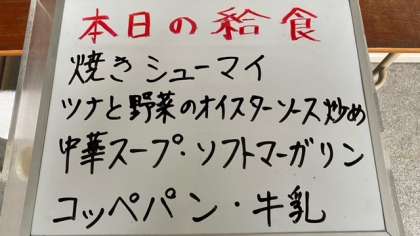 本日の給食
焼きシューマイ
ツナと野菜のオイスターソース炒め
中華スープ・ソフトマーガリン
コッペパン・牛乳